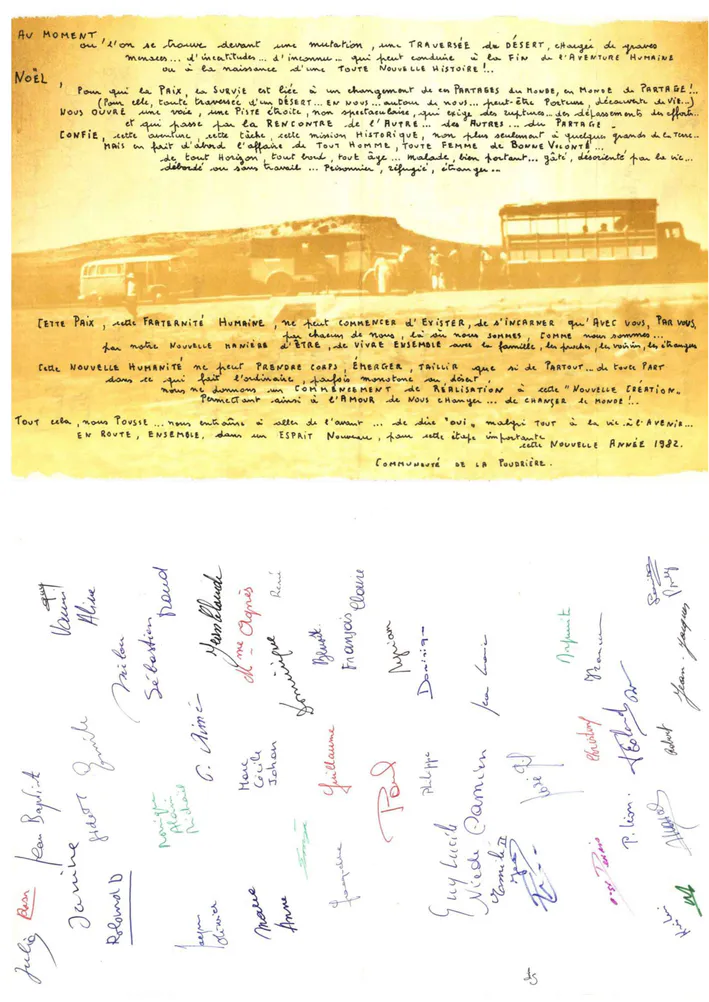 AU MOMENT
où l'on se trouve devant une mutation, une TRAVERSÉE du DÉSERT, chargée de graves
menaces... d'incertitudes... d'inconnu... qui peut conduire à la FIN de l'AVENTURE HUMAINE
ou à la naissance d'une TOUTE NOUVELLE HISTOIRE !..
NOËL,
Pour qui la PAIX, la SURVIE est liée à un changement de en PARTAGES du MONDE, en MONDE de PARTAGE !..
(Pour elle, toute traversée d'un DÉSERT... EN NOUS... autour de nous... peut-être Porteuse, découverte de VIE...)
NOUS OUVRE une voie, une PISTE étroite, non spectaculaire, qui exige des ruptures... des dépassements des efforts...
et qui passe par la RENCONTRE de l'AUTRE... des AUTRES... du PARTAGE -
CONFIE, cette aventure, cette tâche, cette mission HISTORIQUE, non plus seulement à quelques grands de la Terre..
MAIS en fait d'abord l'affaire de TOUT HOMME, TOUTE FEMME de BONNE VOLONTÉ...
de tout Horizon, tout bord, tout âge... malade, bien portant... gâté, désorienté par la vie...
débordé ou sans travail... Prisonnier, réfugié, étranger...
CETTE PAIX, cette FRATERNITÉ HUMAINE, ne peut COMMENCER d'EXISTER, de s'INCARNER qu'AVEC VOUS, PAR VOUS,
par chacun de nous, là où nous SOMMES, COMME nous sommes...
par notre NOUVELLE MANIÈRE d'ÊTRE, de VIVRE ENSEMBLE avec la famille, les proches, les voisins, les étrangers
Cette NOUVELLE HUMANITÉ ne peut PRENDRE CORPS, ÉMERGER, JAILLIR que si de PARTOUT... de toute PART
dans ce qui fait l'ordinaire, parfois monotone au désert
nous ne donnons un COMMENCEMENT de RÉALISATION à cette "NOUVELLE CRÉATION„
Permettant ainsi à l'AMOUR de NOUS changer... de CHANGER le MONDE !..
TOUT cela, nous POUSSE... nous entraîne à aller de l'avant... de dire "OUI„ malgré TOUT à la vie à l'AVENIR...
EN ROUTE, ENSEMBLE, dans un ESPRIT Nouveau, pour cette étape importante
cette NOUVELLE ANNÉE 1982.
COMMUNAUTÉ DE LA POUDRIÈRE.
Guy
Aline
Sébastien
Jean Claude
Mme Agnès
René
Dominique
Benoît
François
Claire
Dominique
Jean Baptiste
Emile
C. Aimé
Marc
Cécile
Johan
Guillaume
Paul
Philippe
Damien
José
Christian
P. Léon
Robert
Jean-Jacques
Julia
Janine
Gisèle
Roland D
Monique
Alain
Michaël
Marie
Anne
Jacqueline
Guy Lucile